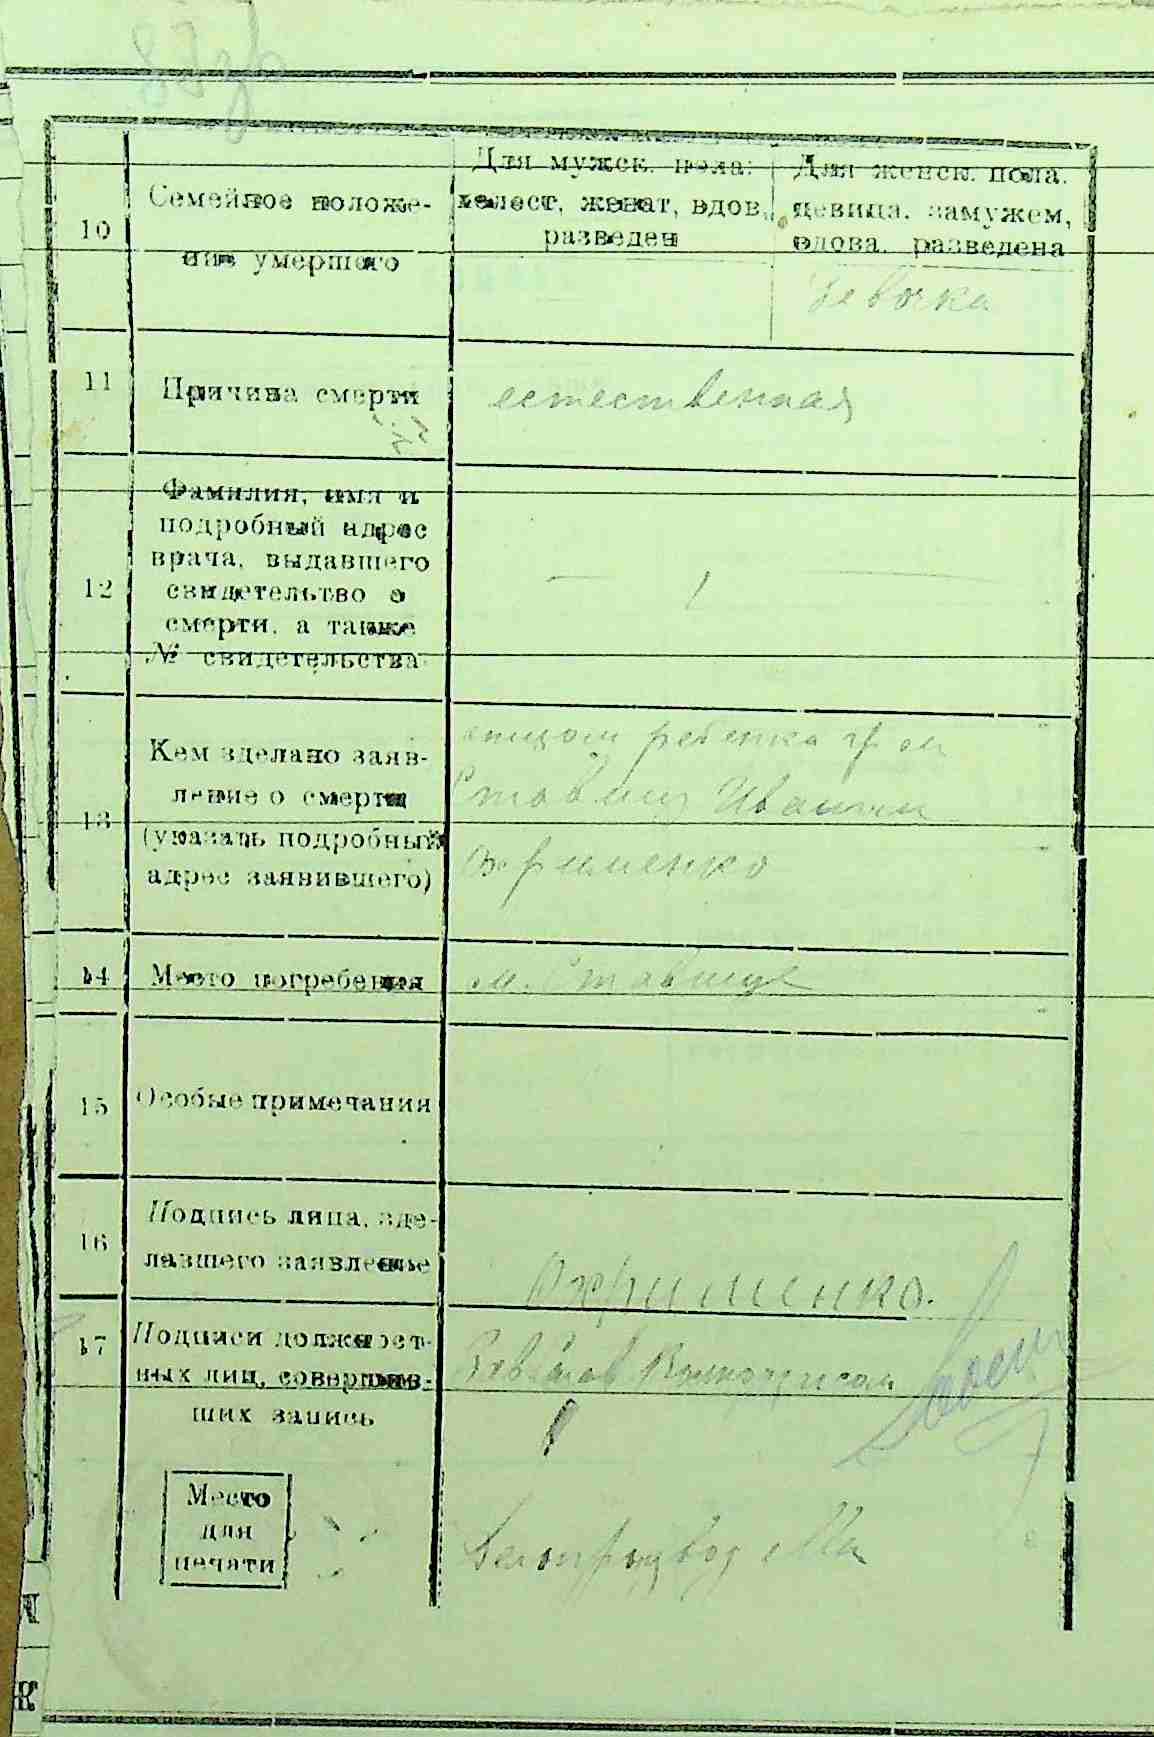 10
Семейное положе-
ние умершего
Для мужск. пола:
холост, женат, вдов,
разведен
Для женск. пола.
девица, замужем,
вдова, разведена
девочка
11
Причина смерти
естественная
12
Фамилия, имя и
подробный адрес
врача, выдавшего
свидетельство о
смерти, а также
№ свидетельства
13
Кем зделано заяв-
ление о смерти
(указать подробный
адрес заявившего)
отцом ребенка гр м
Ставищ Иваном
Охрименко
14
Место погребения
м. Ставище
15
Особые примечания
16
Подпись лица, зде-
лавшего заявление
Охрименко.
17
Подписи должност-
ных лиц, совершив-
ших запись
Место
для
печати
Делопроизвод